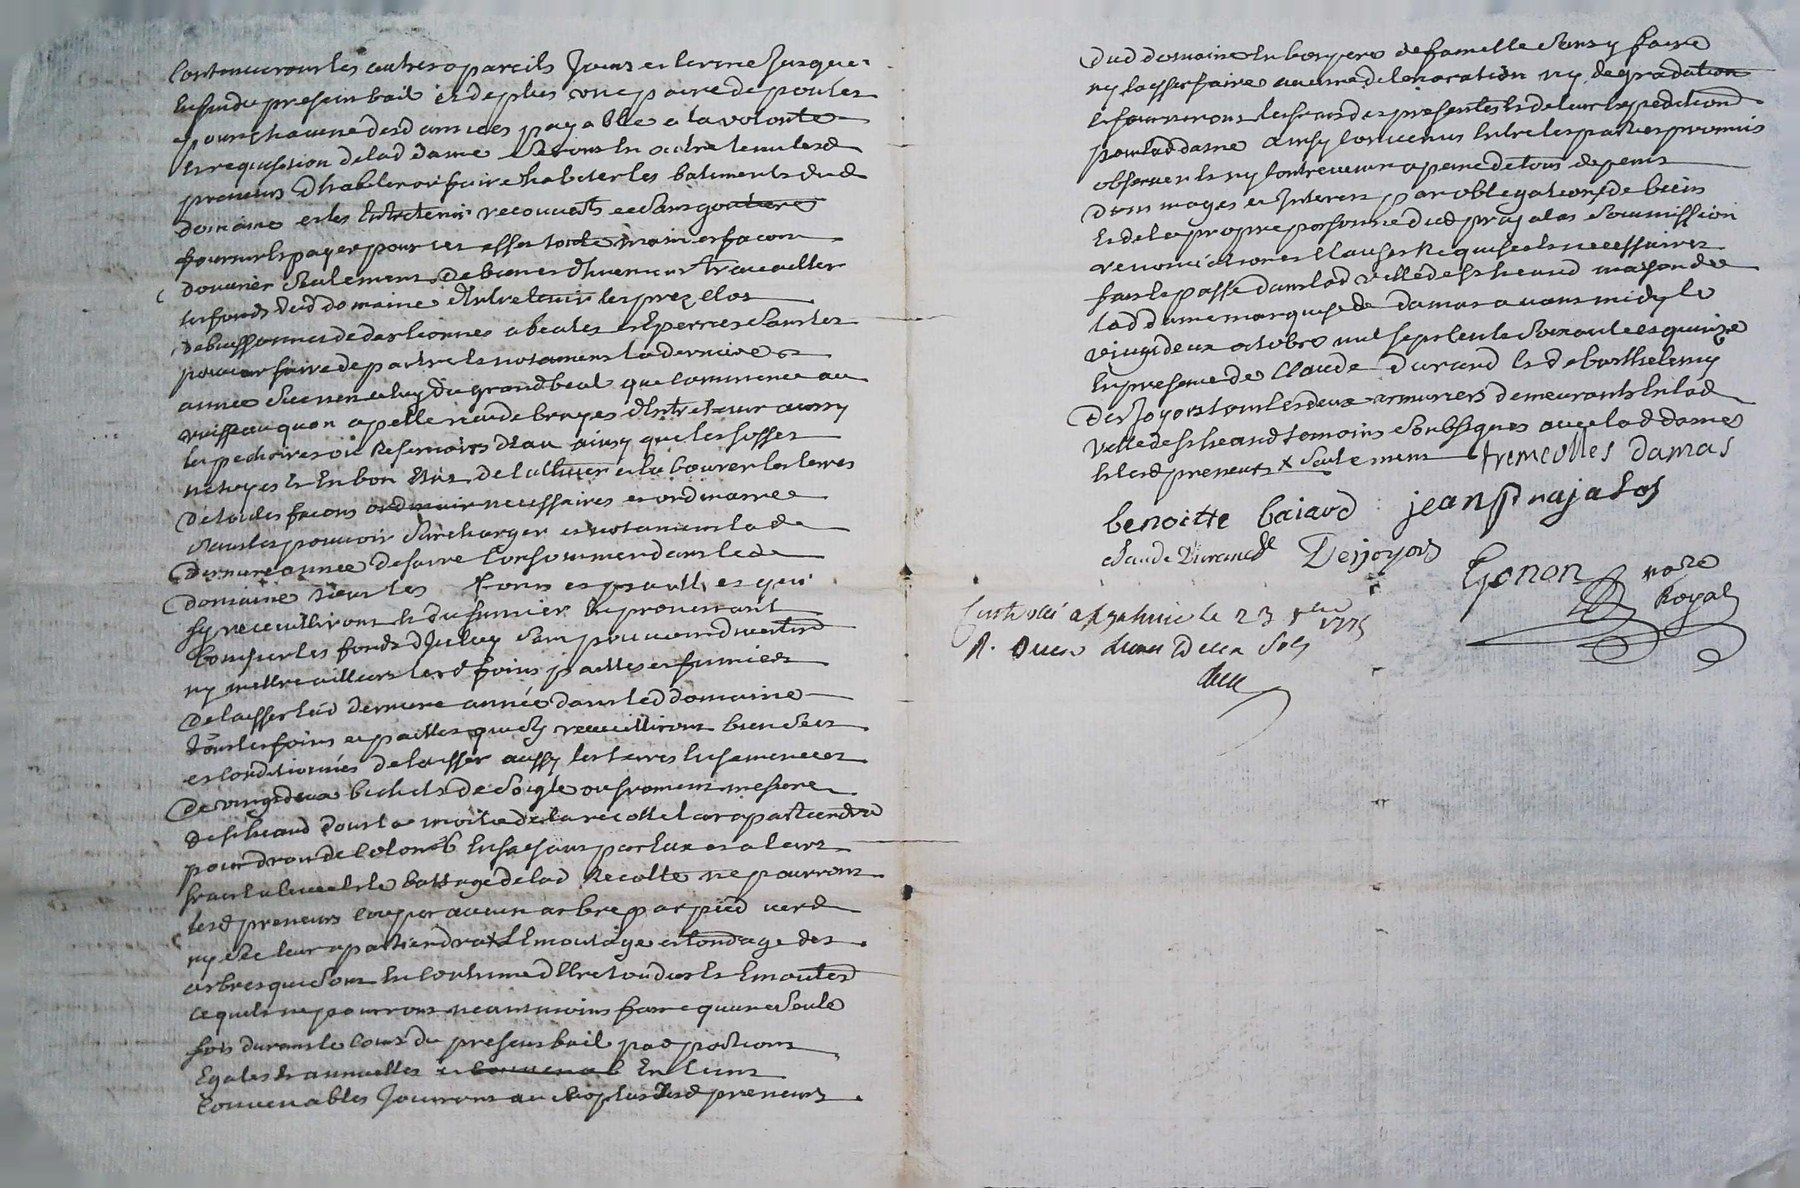 Continuer tous les autres a pareils Jours et terme Jusques
En fin du present bail et de plus une paire de poulets
pour Chacune desd annees payable a la volonté
Et requisition de lad dame Seront En outre tenus lesd
preneurs d'habiter ou faire habiter les batiments dud
domaine et les Entretenir recouverts et Sans goutieres
fournir Et payer pour cet effet toute main et facon
Douvrier Seulement De bien et
les fonds dud domaine Entretenir les prez clos
De buissonnees
pouvoir faire departir Et notament la derniere
année du grand beal que Commence au
ruisseau quon apelle Entretenir aussy
les pecheries ou Reservoirs D'Eau ainsy que les fosses
netoyes Et En bon Etat De Cultiver et labourer les terres
De toutes facons necessaires et ordinaires
Sans les pouvoir Surcharger et notament lad
Derniere année De faire Consommer dans led
Domaine tous les foins et pailles et qui
Sy receuilliront Et du fumier En provenant
les fonds D'Iceluy Sans pouvoir divertir
ny mettre ailleurs lesd foins pailles et fumiers
De laisser lad derniere année dans led domaine
Tous les foins et pailles quils receuilliront bien Secs
et Conditionnés De laisser aussy les terres Ensemencees
De vingt deux bichets De Seigle ou froment mesure
De St heand Dont la moitié de la recolte leur apartiendra
pour droit de Colonage En faisant par Eux et a leurs
frais la levee Et le battage de lad Recolte ne pourront
lesd preneurs Couper aucun arbre par pied verd
ny Sec leur apartiendra Lemoutage et tondage des
arbres qui Sont En Coutume d'Etre tondus Et Emoutés
Ce quils ne pourront neantmoins faire quune Seule
fois durant le Cours du present bail par portions
Egales Et annuelles et En tems
Convenables Jouiront au Surplus lesd preneurs
Dud domaine En bon pere de famille Sans y faire
ny laisser faire aucune deterioration ny degradation
Et fourniront les frais des presentes Et de leur Expedition
pour lad dame ainsy Convenus Entre les parties promis
observer Et ny Contrevenir a peine de tous depens
Dommages et Interets par obligation de biens
Et de la propre personne dud prajalas Soumission
renonciation et Clauses Requises Et necessaires
fait Et passé dans lad ville de St heand maison de
lad dame marquise de Damas avant midy le
vingt deux octobre mil sept cent Soixante et quinze
En presence de Claude Durand Et de barthelemy
Desjoyaux tous les deux armuriers demeurants En lad
ville de St heand temoins Soubsignes avec lad dame
Et lesd preneurs x Seulement tremeolles Damas
benoitte baiard jean prajalas
Claude Durand Desjoyaux
Gonon note
Royal
Controllé a St galmier le 23 8bre 1775
R. Deux Sols